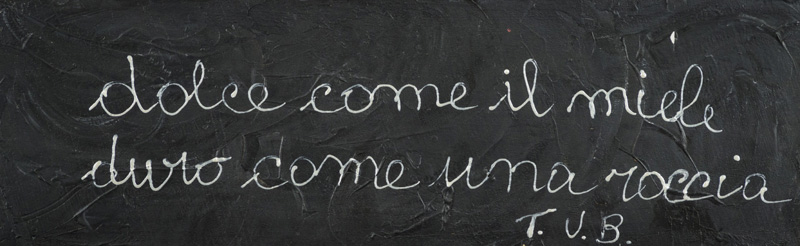 dolce come il miele
duro come una roccia
T.V.B.